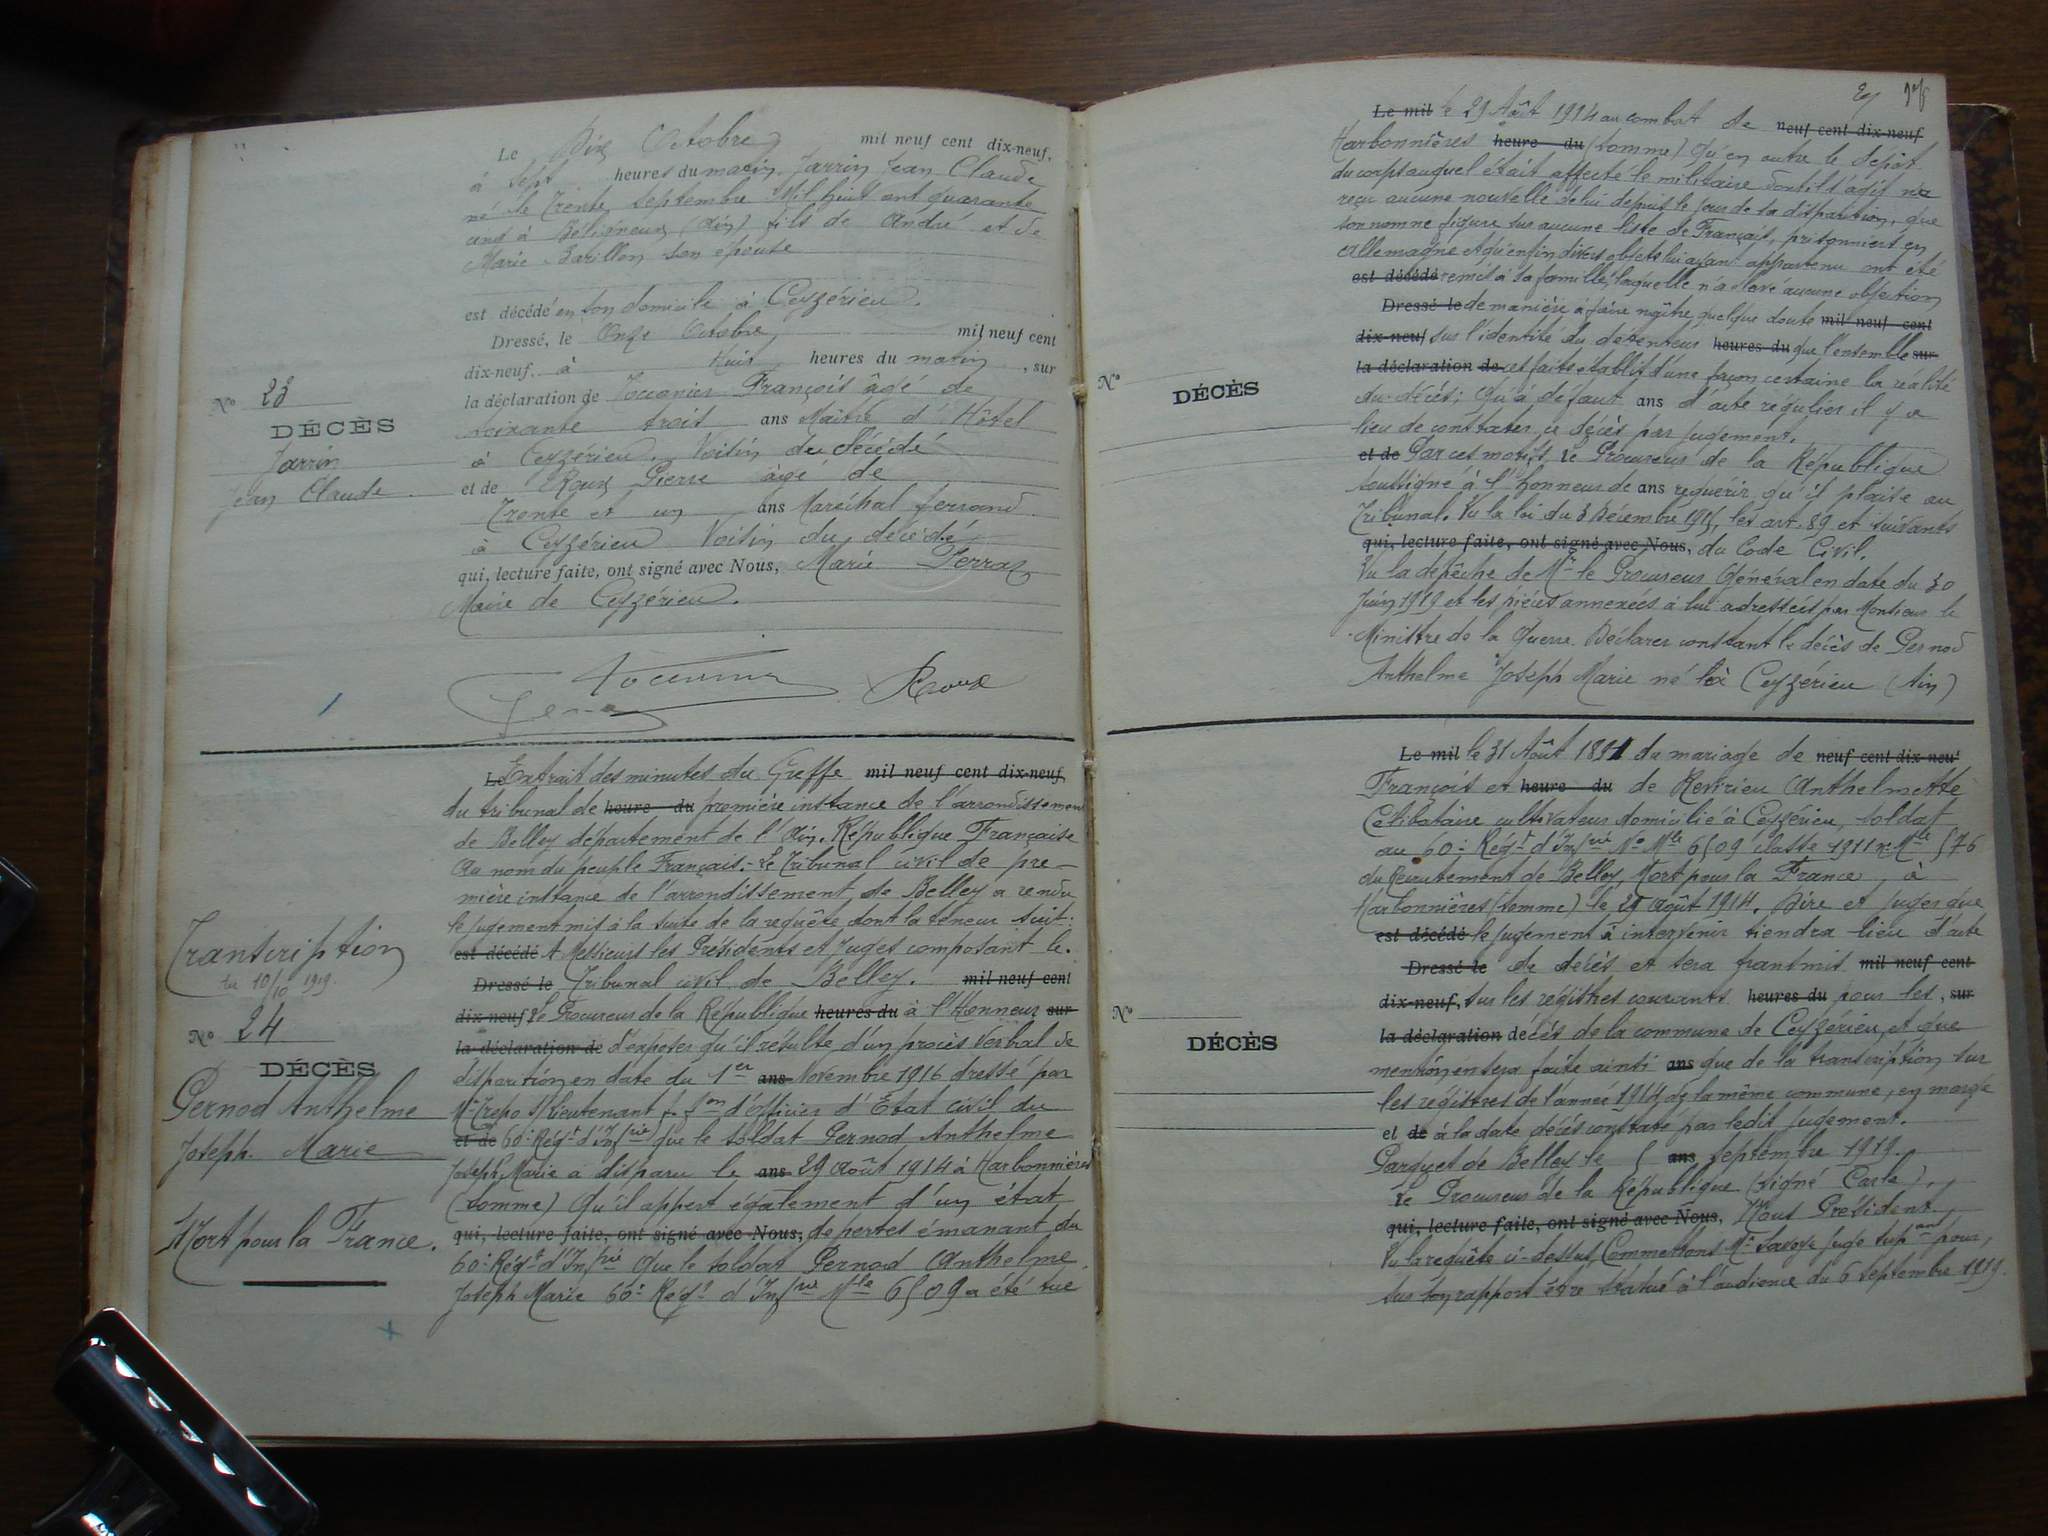 Le Dix Octobre mil neuf cent dix-neuf,
à sept heures du matin, Jarrin Jean Claude
né le trente septembre Mil huit cent quarante
cinq à Béligneux (Ain) fils de André et de
Marie Barillon son épouse
est décédé en son domicile à Ceyzérieu.
Dressé, le Onze Octobre mil neuf cent
dix-neuf, à Huit heures du matin, sur
la déclaration de Toccanier François âgé de
soixante trois ans Maître d'Hôtel
à Ceyzérieu, Voisin du décédé
et de Roux Pierre âgé de
Trente et un ans Maréchal ferrand
à Ceyzérieu Voisin du décédé
qui, lecture faite, ont signé avec Nous, Marie Perraz
Maire de Ceyzérieu.
Roux
No 23
DÉCÈS
Jarrin
Jean Claude
Le Extrait des minutes du Greffe mil neuf cent dix-neuf,
du tribunal de heure du première instance de l'arrondissement
de Belley département de l'Ain. République Française
Au nom du peuple Français. Le Tribunal civil de pre-
mière instance de l'arrondissement de Belley a rendu
le jugement mis à la suite de la requête dont la teneur suit.
est décédé A Messieurs les Présidents et Juges composant le
Dressé le Tribunal civil de Belley. mil neuf cent
dix-neuf Le Procureur de la République heures du à l'Honneur sur
la déclaration de d'exposer qu'il résulte d'un procès verbal de
disparition en date du 1er ans Novembre 1916 dressé par
Mr Trepo S/Lieutenant f. fon d'officier d'Etat civil du
et de 60e Régt d'Infrie que le soldat Pernod Anthelme
Joseph Marie a disparu le ans 29 Août 1914 à Harbonnières
(Somme) Qu'il appert également d'un état
qui, lecture faite, ont signé avec Nous, de pertes émanant du
60e Régt d'Infrie que le soldat Pernod Anthelme
Joseph Marie 60e Régt d'Infrie Mle 6509 a été tué
Transcription
du 10/10 1919.
No 24
DÉCÈS
Pernod Anthelme
Joseph Marie
Mort pour la France.
Le mil le 29 Août 1914 au combat de neuf cent dix-neuf
Harbonnières heure du (Somme) Qu'en outre le dépôt
du corps auquel était affecté le militaire dont il s'agit n'a
reçu aucune nouvelle de lui depuis le jour de sa disparition, que
son nom ne figure sur aucune liste de Français, prisonniers en
Allemagne et qu'enfin divers objets lui ayant appartenu ont été
est décédé remis à sa famille, laquelle n'a élevé aucune objection
Dressé le de manière à faire naître quelque doute mil neuf cent
dix-neuf sur l'identité du détenteur heures du que l'ensemble sur
la déclaration de cet faits établit d'une façon certaine la réalité
du décès; Qu'à défaut ans d'acte régulier il y a
lieu de constater ce décès par jugement.
et de Par ces motifs Le Procureur de la République
soussigné à l'honneur de ans requérir qu'il plaise au
Tribunal. Vu la loi du 3 Décembre 1915, les art. 89 et suivants
qui, lecture faite, ont signé avec Nous, du Code Civil.
Vu la dépêche de Mr le Procureur Général en date du 30
Juin 1919 et les pièces annexées à lui adressées par Monsieur le
Ministre de la Guerre. Déclarer constant le décès de Pernod
Anthelme Joseph Marie né à Ceyzérieu (Ain)
No
DÉCÈS
Le mil le 31 Août 1891 du mariage de neuf cent dix-neuf
François et heure du de Revirieu Anthelmette
Célibataire cultivateur domicilié à Ceyzérieu, soldat
au 60e Régt d'Infrie No Mle 6509 classe 1911 no Mle 576
du recrutement de Belley, Mort pour la France, à
Harbonnières (Somme) le 29 Août 1914. Dire et juger que
est décédé le jugement à intervenir tiendra lieu d'acte
Dressé le de décès et sera transmit mil neuf cent
dix-neuf, sur les régistres courants heures du pour les, sur
la déclaration décès de la commune de Ceyzérieu, et que
mention en sera faite ainsi ans que de la transcription sur
les régistres de l'année 1914 de la même commune, en marge
et de à la date décès constaté par ledit jugement.
Parquet de Belley le 5 ans septembre 1919.
Le Procureur de la République (signé Carle).
qui, lecture faite, ont signé avec Nous, Nous Président
Vu la requête ci-dessus, Commettons Mr Savoye juge supant pour,
sur son rapport être statué à l'audience du 6 septembre 1919.
No
DÉCÈS